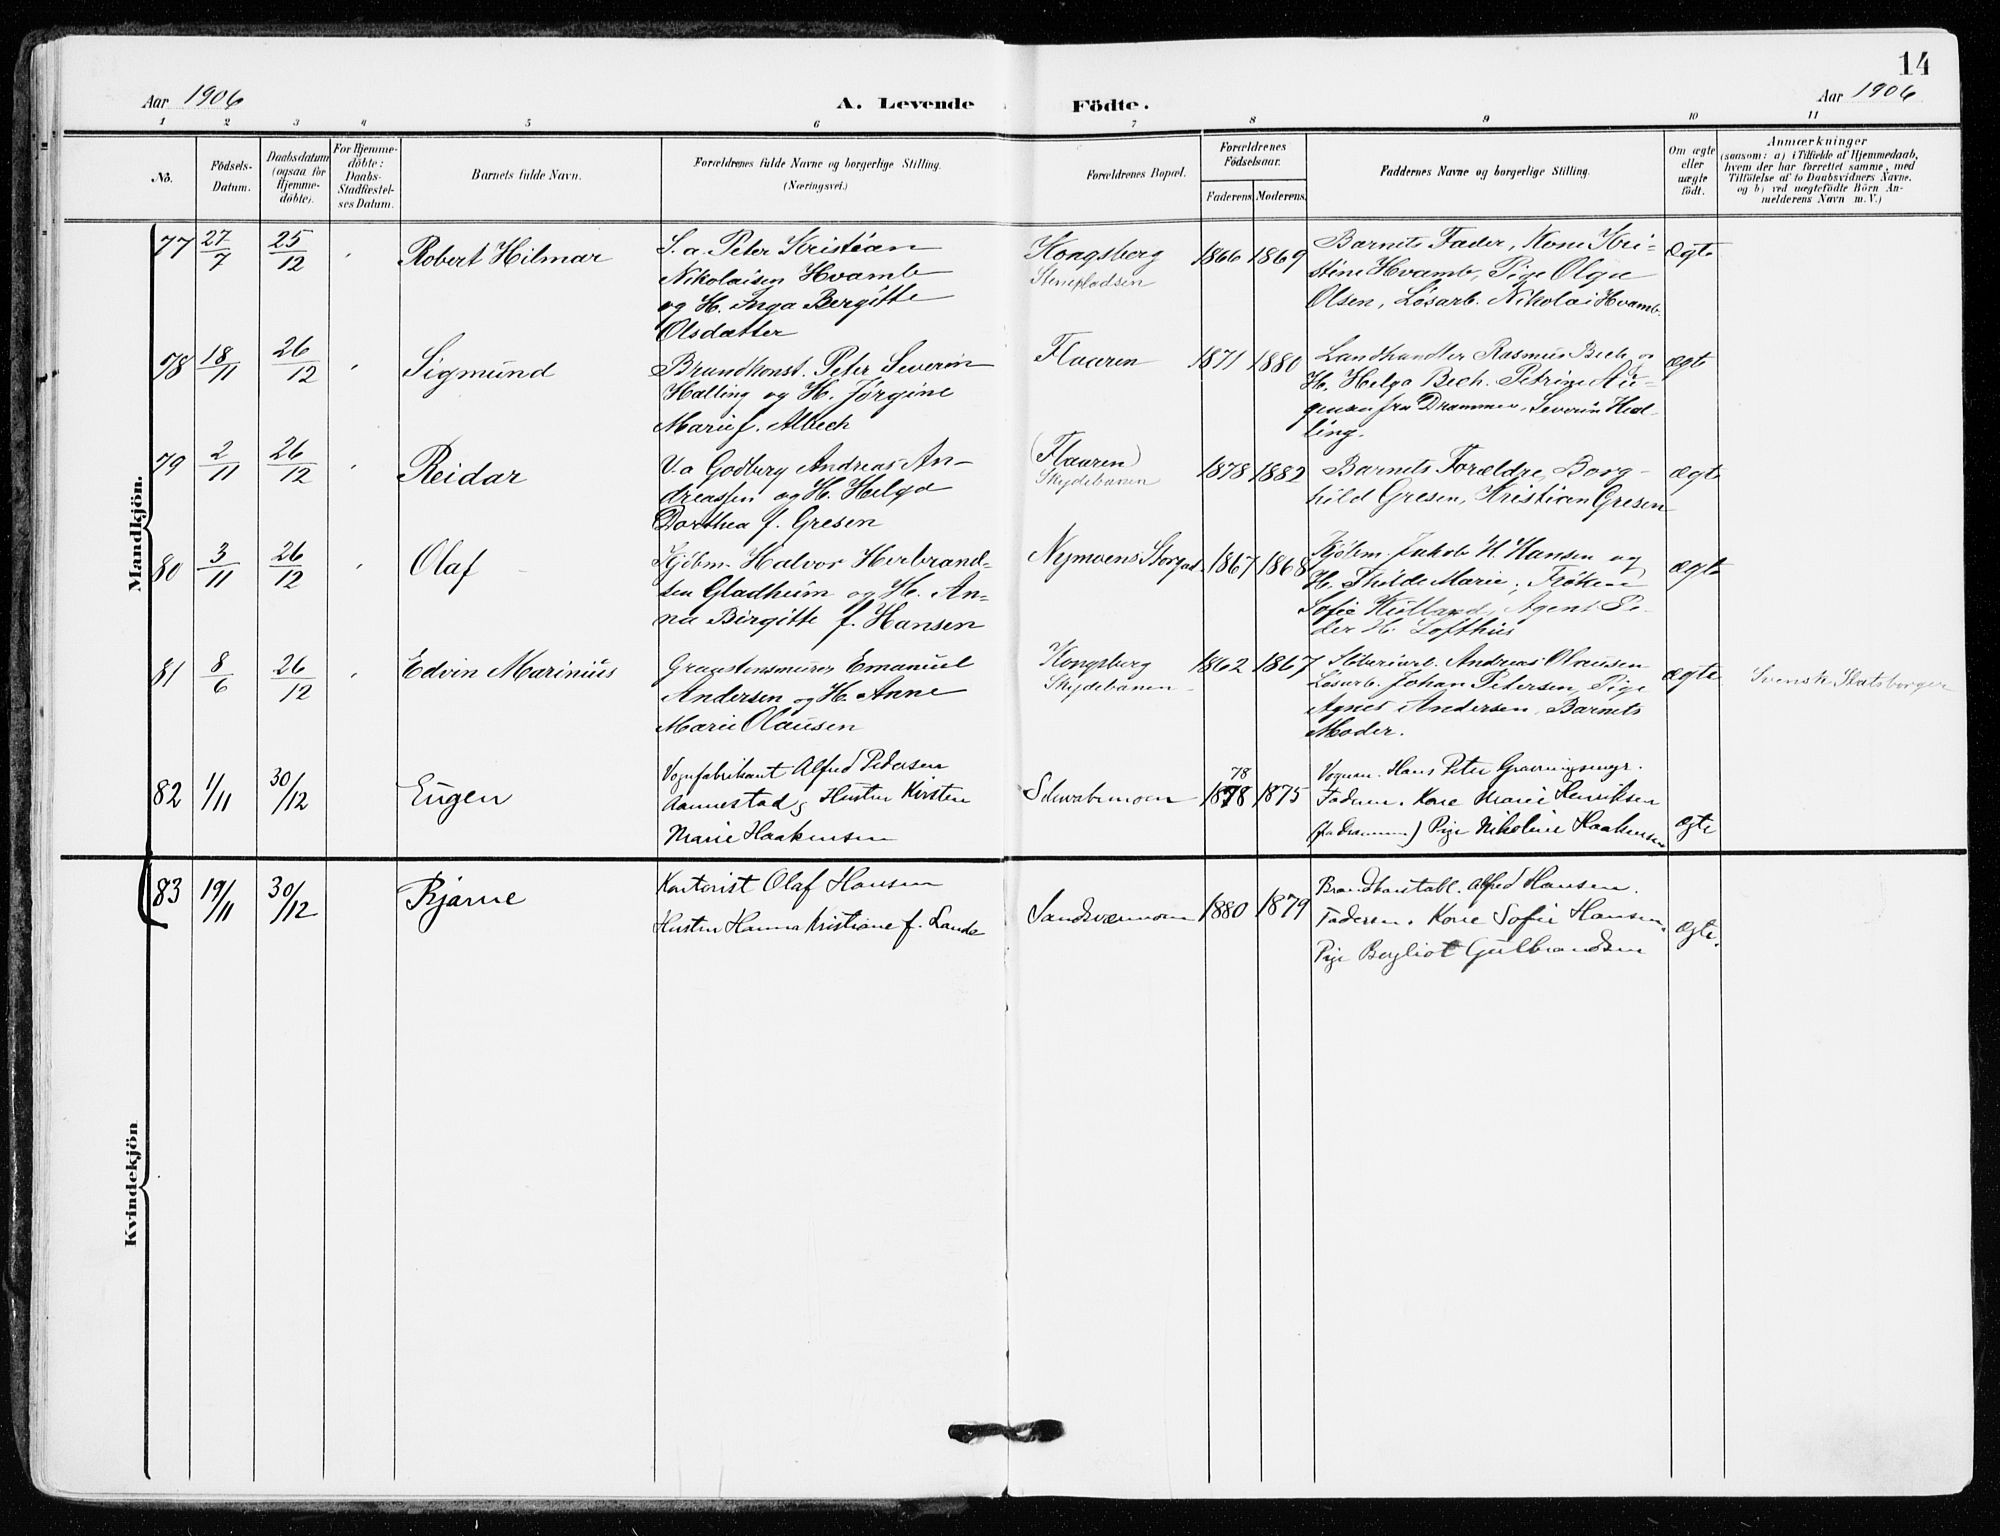 14
Aar 1906
A. Levende Födte.
Aar 1906
1 2 3 4 5 6 7 8 9 10 11
No.
Födsels-Datum.
Daabsdatum (ogsaa for Hjemme-döbte).
For Hjemme-döbte: Daabs-Stadfæstel-ses Datum.
Barnets fulde Navn.
Forældrenes fulde Navne og borgerlige Stilling.
(Næringsvei.)
Forældrenes Bopæl.
Forældrenes Födselsaar.
Faderens Moderens.
Faddernes Navne og borgerlige Stilling.
Om ægte eller uægte födt.
Anmærkninger
(saasom: a) i Tilfælde af Hjemmedaab,
hvem der har forrettet samme, med
Tilföielse af to Daabsvidners Navne,
og b) ved uægtefödte Börn An-
melderens Navn m. V.)
Mandkjön.
77 27/7 25/12 Robert Hilmar
S. a. Peter Kristian
Nikolaisen Hvamb
og H. Inga Bergitte
Olsdatter
Kongsberg
Stenpladsen
1866 1869
Barnets Fader, Kone Kri-
stine Hvamb, Pige Olga
Olsen, Løsarb. Nikolai Hvamb.
ægte
78 18/11 26/12 Sigmund
Brandkonst. Peter Severin
Halling og H. Jørgine
Marie f. Albech
Flaaren
1871 1880
Landhandler Rasmus Bech og
H. Helga Bech. Petrine
fra Drammen, Severin Hal-
ling.
ægte
79 2/11 26/12 Reidar
V. a Godburg Andreas An-
dreassen og H. Helga
Dorthea f. Gresen
(Flaaren)
Skydebanen
1878 1882
Barnets Forældre, Borg-
hild Gresen, Kristian Gresen
ægte
80 3/11 26/12 Olaf
Kjøbm. Halvor Herbrand-
sen Gladheim og H. An-
na Birgitte f. Hansen
Nymoens Storgad.
1867 1868
Kjøbm. Jakob H. Hansen og
H. Thilde Marie, Frøken
Sofie Kielland, Agent Pe-
der H. Lofthus
ægte
81 8/6 26/12 Edvin Marinius
Graastensmurer Emanuel
Andersen og H. Anne
Marie Olausen
Kongsberg
Skydebanen
1862 1867
Støberiarb. Andreas Olausen
Løsarb. Johan Petersen, Pige
Agnes Andersen, Barnets
Moder.
ægte
Svensk Statsborger
82 1/11 30/12 Eugen
Vognfabrikant Alfred Pedersen
Aannestad og Hustru Kirsten
Marie Haakensen
Schwabemoen
78
1878 1875
Vognm. Hans Peter
Faderen. Kone Marie Henriksen
(fra Drammen) Pige Nikoline Haakensen
ægte
83 19/11 30/12 Bjarne
Kontorist Olaf Hansen
Hustru Hanna Kristiane f. Lande
Sandsværmoen
1880 1879
Brandkonstabl. Alfred Hansen.
Faderen. Kone Sofie Hansen.
Pige Bergliot Gulbrandsen
ægte.
Kvindekjön